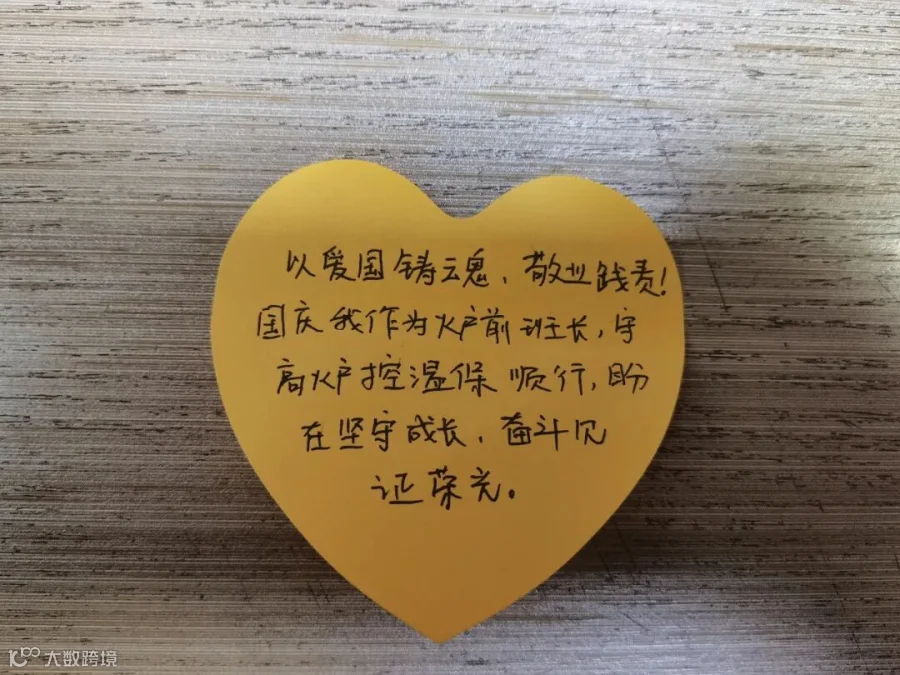 以爱国铸魂、敬业践责！
国庆我作为炉前班长，守
高炉控温保顺行，盼
在坚守成长、奋斗见
证荣光。
大数跨境